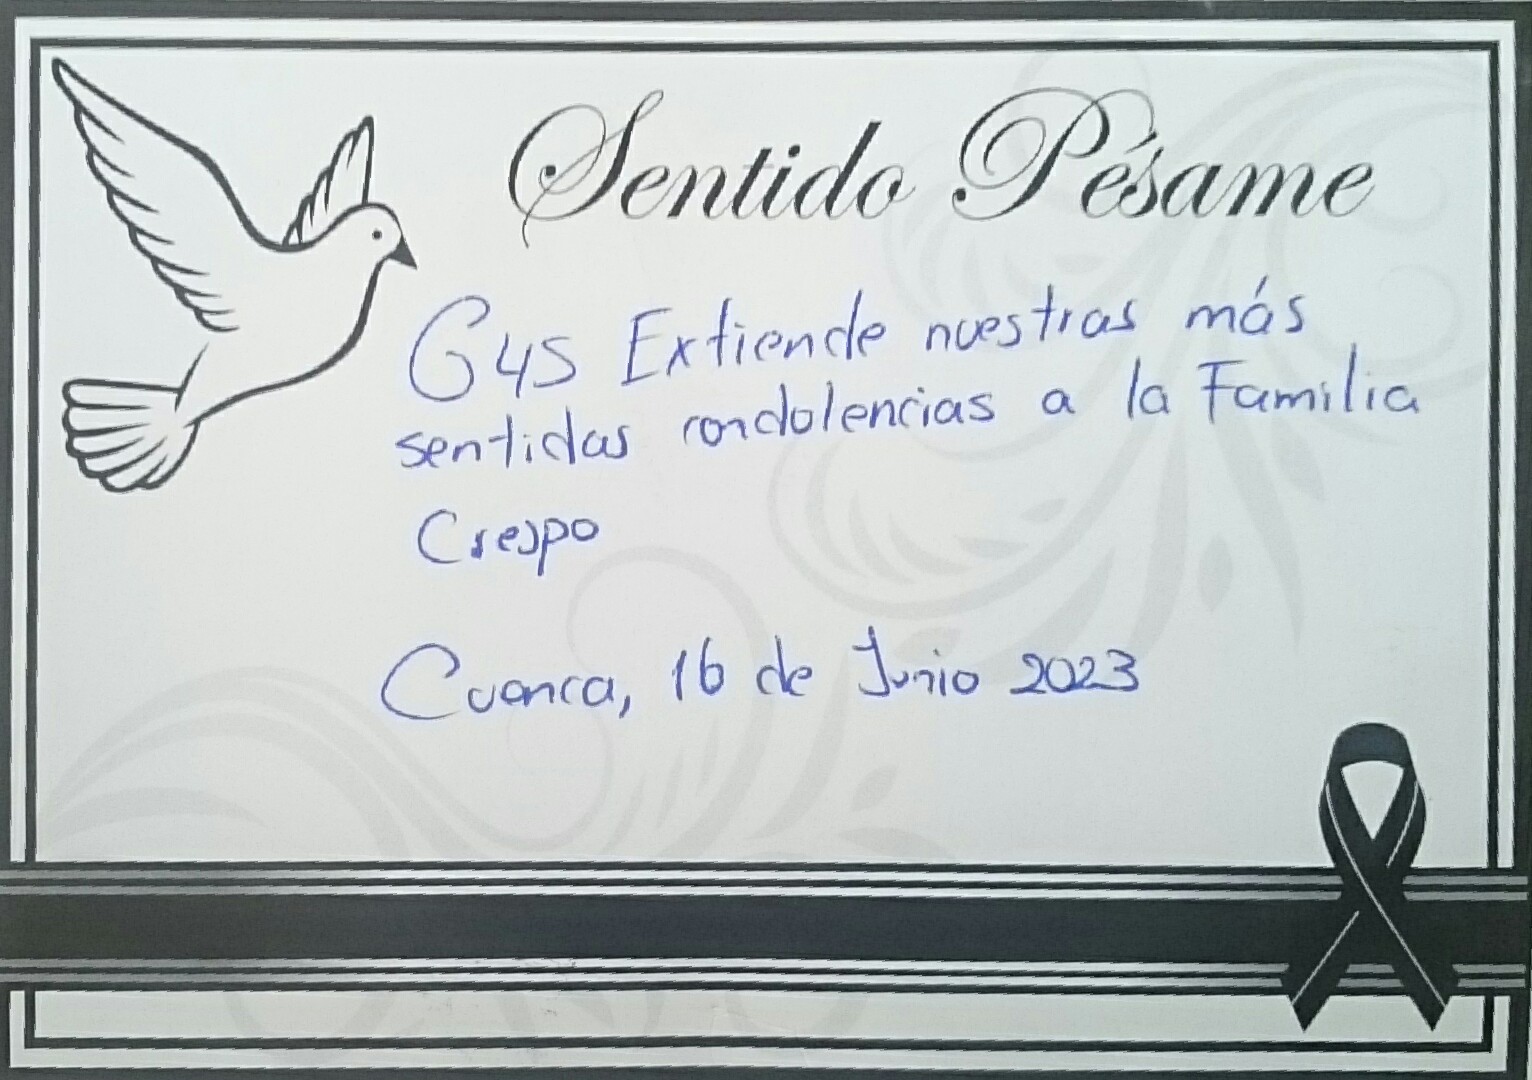 Sentido Pésame
G4S Extiende nuestras más
sentidas condolencias a la Familia
Crespo
Cuenca, 16 de Junio 2023